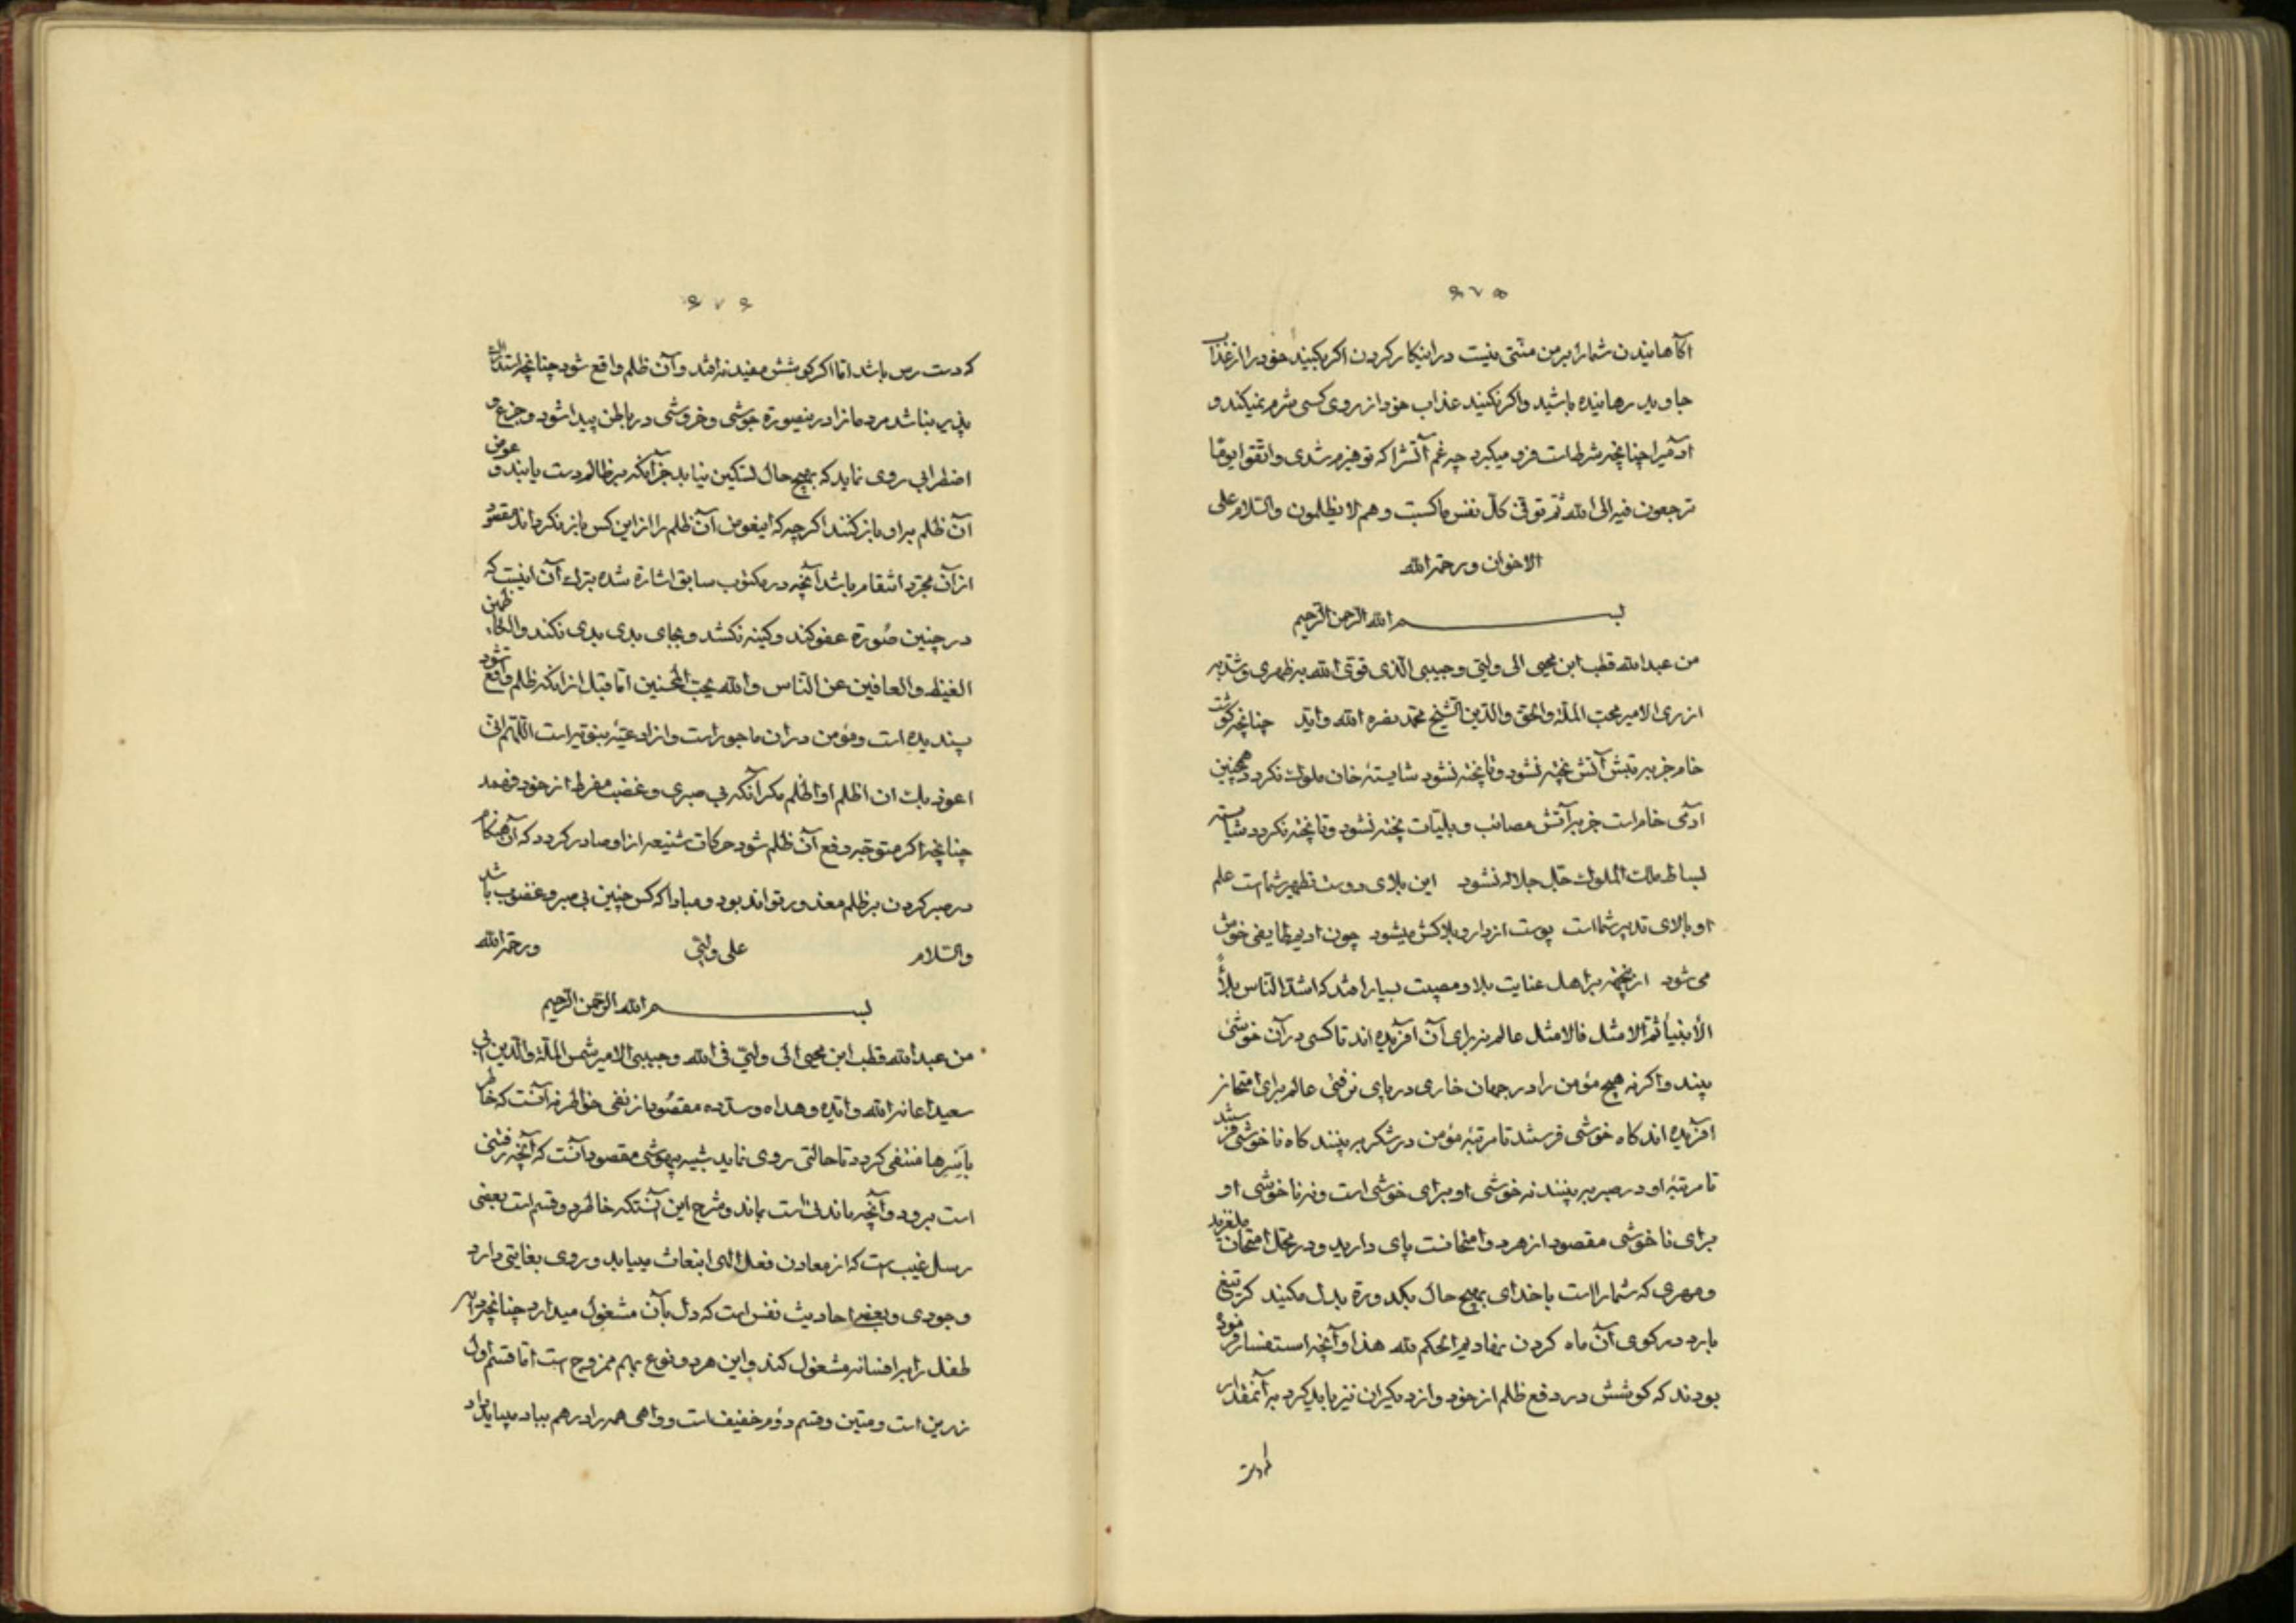 ۶۷۵
آگاهانیدن شما را بر من منتی نیست در اینکار کردن اکر بکنید خود را از عذاب
جاوید رهانیده باشید واکر نکنید عذاب خود از روی کسی شرم نمیکند و
آدمیرا چنانچه شرطست فرو میکیرد چه غم آتشرا که تو هیزم شدی واتقوا یوما
ترجعون فیه الی الله ثم توفی کل نفس ما کسبت وهم لا یظلمون والسلام علی
الاخوان ورحمة الله
بسم الله الرحمن الرحیم
من عبدالله قطب ابن محیی الی ولیی وحبیبی الذی قوی الله به ظهری وشد به
ازری الامیر محب الملة والحق والدین الشیخ محمد نصره الله وایده چنانچه کوشت
خام جز به تبش آتش پخته نشود وتا پخته نشود شایستهٔ خان ملوک نکردد همچنین
آدمی خام است جز به آتش مصائب وبلیات پخته نشود وتا پخته نکردد شایسته
بساط ملک الملوک جل جلاله نشود این بلای دوست تطهیر شماست علم
او بالای تدبیر شماست پوست از دارو بلاکش میشود چون ادیم طایفی خوش
می‌شود ازینجهة بر اهل عنایت بلا ومصیبت بسیار افتد که اشد الناس بلاءً
الأنبیأ ثم الامثل فالامثل عالم نه برای آن آفریده اند تا کسی در آن خوشی
بیند واکر نه هیچ مؤمن را در جهان خاری در پای نرفتی عالم برای امتحان
آفریده اند کاه خوشی فرستند تا مرتبهٔ مؤمن در شکر به بینند کاه ناخوشی فرستند
تا مرتبهٔ او در صبر به بینند نه خوشی او برای خوشی است ونه ناخوشی او
برای ناخوشی مقصود از هر دو امتحانست پای دارید ودر محل امتحان ملغزید
ومهری که شما را است با خدای بهیچ حال بکدورة بدل مکنید کر تیغ
بارد در کوی آن ماه کردن نهادیم الحکم لله هذا وآنچه استفسار فرموده
بودند که کوشش در دفع ظلم از خود واز دیکران نیز باید کرد بر آنمقدار
۶۷۶
که دست رس باشد اما اکر کوشش مفید نه افتد وآن ظلم واقع شود چنانچه استدراک
پذیر نباشد مردمانرا درینصورة جوشی وخروشی در باطن پیدا شود وجزع و
اضطرابی روی نماید که بهیچ حال تسکین نیابد جز آنکه بر ظالم دست یابند و عوض
آن ظلم بر او باز کنند اکرچه که اینعوض آن ظلم را از این کس باز نکرداند مقصود
از آن مجرد انتقام باشد آنچه در مکتوب سابق اشارة شده بترک آن اینست که
در چنین صورة عفو کند وکینه نکشد وبجای بدی بدی نکند والکاظمین
الغیظ والعافین عن الناس والله یحب المحسنین اما قبل از آنکه ظلم واقع شود
پسندیده است ومؤمن در آن ماجور است واز ادعیهٔ نبویه است اللهم انی
اعوذ بک ان اظلم او اظلم مکر آنکه بی صبری وغضب مفرط از خود فهمد
چنانچه اکر متوجه دفع آن ظلم شود حرکات شنیعه از او صادر کردد که آن هنکام
در صبر کردن بر ظلم معذور تواند بود ومبادا که کس چنین بی صبر وغضوب باشد
والسلام علی ولیی ورحمة الله
بسم الله الرحمن الرحیم
من عبدالله قطب ابن محیی الی ولیی فی الله وحبیبی الامیر شمس الملة والدین ابی
سعید اعانه الله وایده وهداه وسدده مقصود از نفی خواطر نه آنست که خاطر
بأسرها منتفی کردد تا حالتی روی نماید شبیه بیهوشی مقصود آنست که آنچه رفتنی
است برود وآنچه ماندنی است بماند وشرح این آنستکه خاطر دو قسم است بعضی
رسل غیب است که از معادن فعل الهی انبعاث مییابد و روی بغایتی دارد
وجودی وبعضی احادیث نفس است که دل بآن مشغول میدارد چنانچه دایه
طفل را به افسانه مشغول کند واین هر دو نوع بهم ممزوج است اما قسم اول
زرین است ومتین وقسم دوم خفیف است وواهی همه را در هم بباد میباید داد